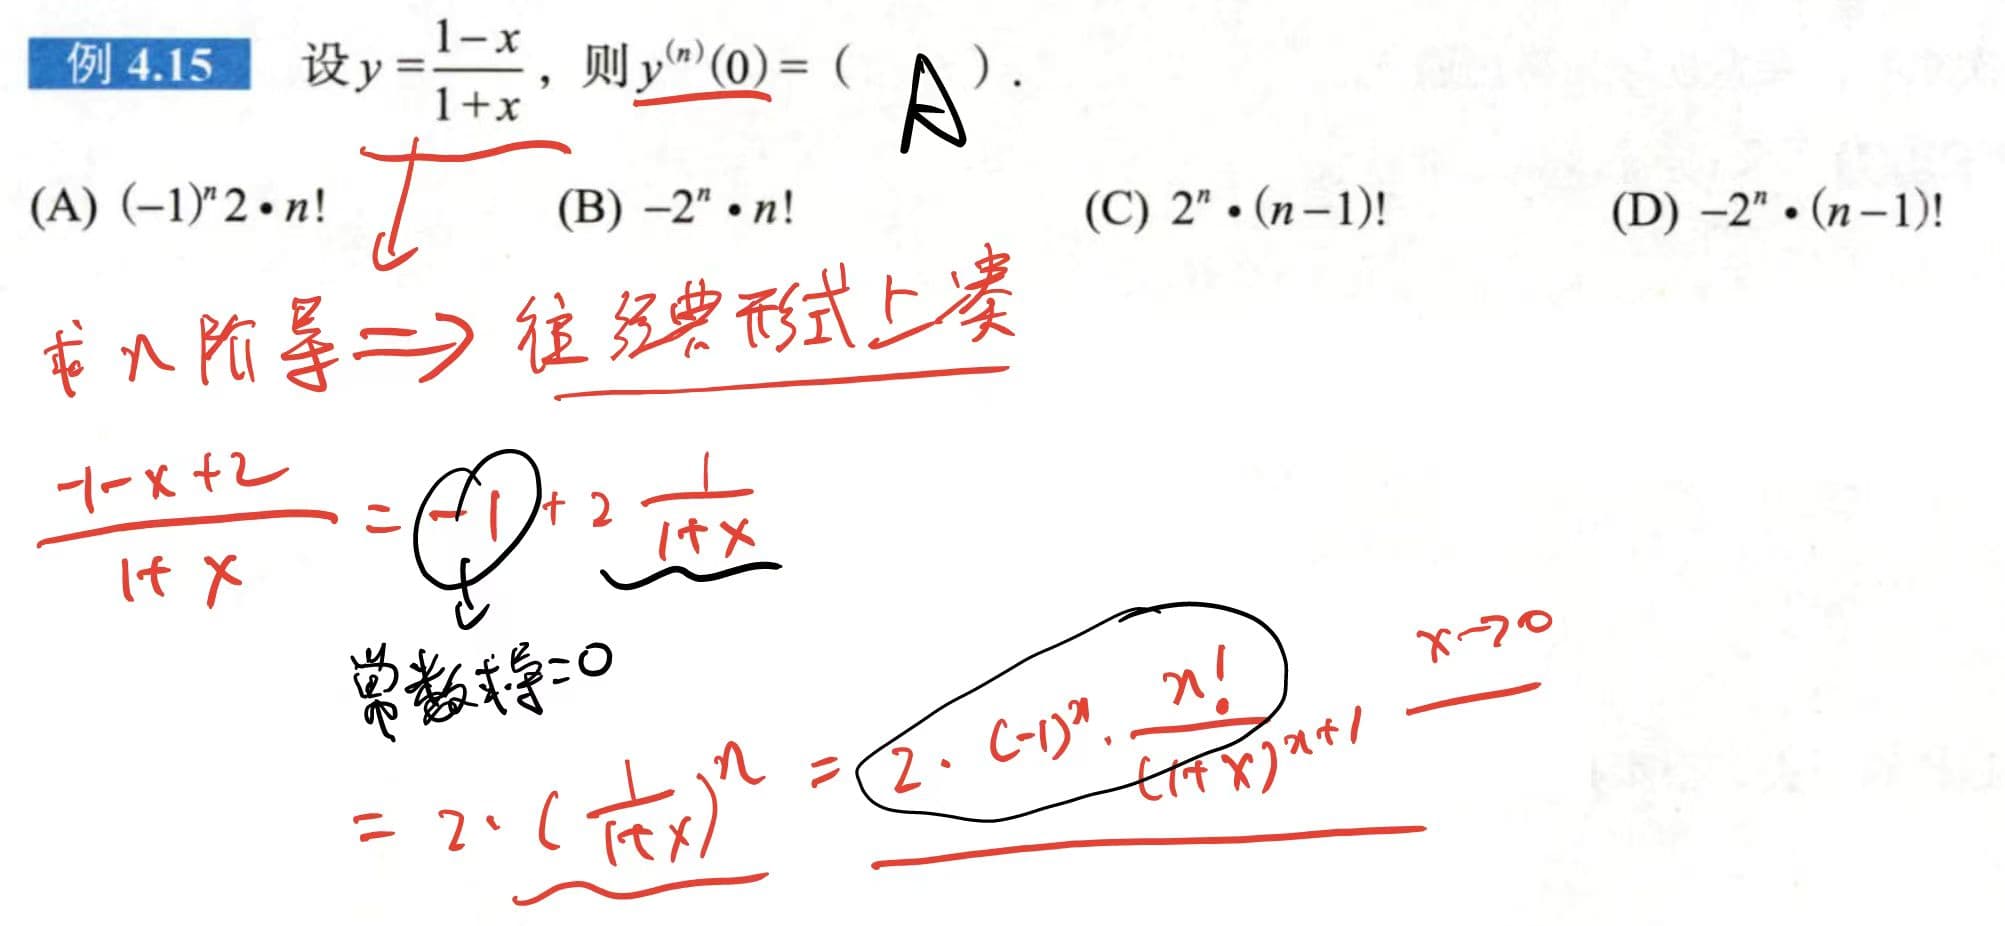 例 4.15 设 y = (1-x)/(1+x)，则 y⁽ⁿ⁾(0) = ( A ).
(A) (-1)ⁿ2•n! (B) -2ⁿ•n! (C) 2ⁿ•(n-1)! (D) -2ⁿ•(n-1)!
求 n 阶导 ⇒ 往经典形式上凑
(-1-x+2)/(1+x) = -1 + 2 1/(1+x)
常数求导=0
x→0
= 2·(1/(1+x))ⁿ = 2·(-1)ⁿ·n!/(1+x)ⁿ⁺¹